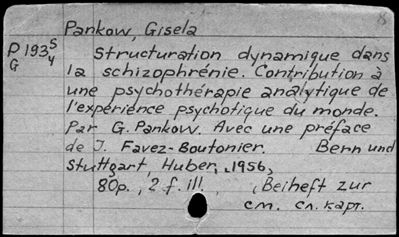 8
Pankow, Gisela
P 193 5/4
G
Structuration dynamique dans
la schizophrénie. Contribution à
une psychothérapie analytique de
l'expérience psychotique du monde.
Par G. Pankow. Avec une préface
de J. Favez-Boutonier. Bern und
Stuttgart, Huber, 1956,
80p., 2 f. ill. , (Beiheft zur
см. сл. карт.